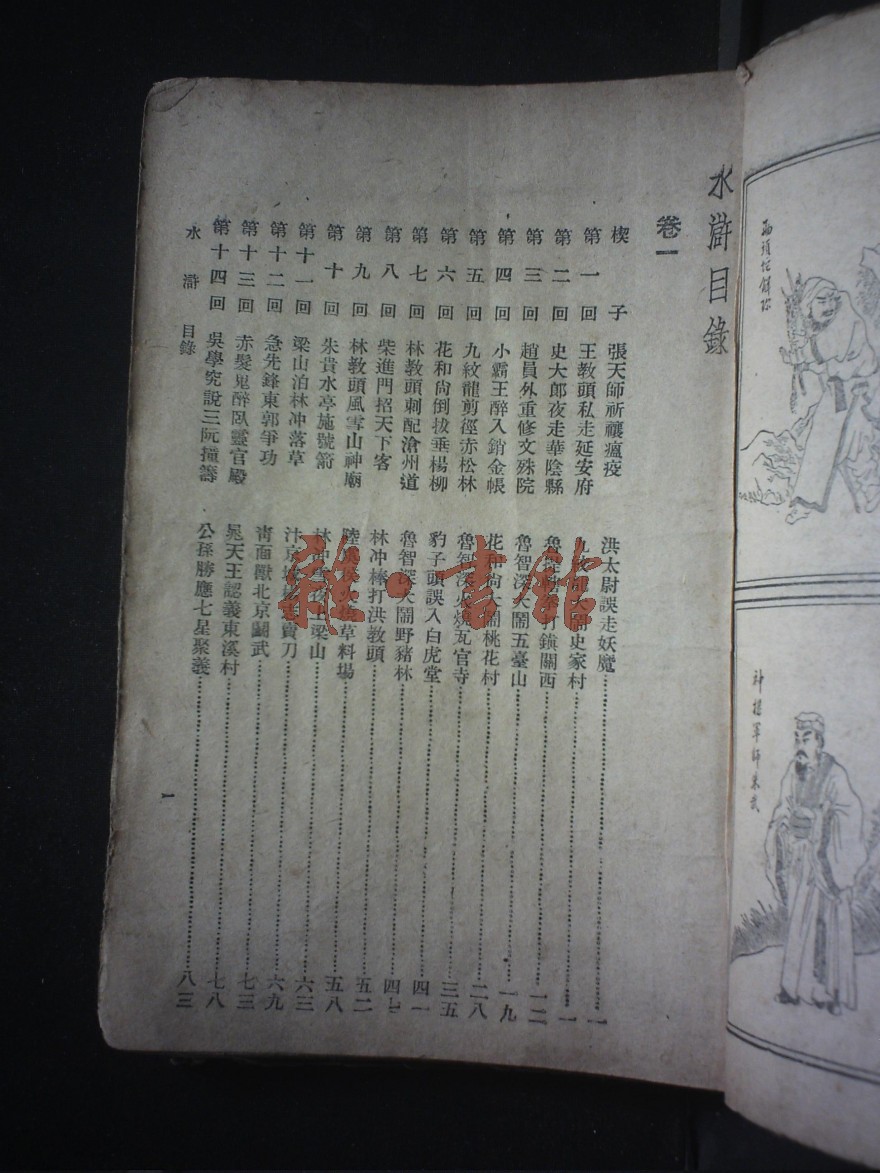 兩頭蛇解珍
神機軍師朱武
水滸目錄
卷一
楔子 張天師祈禳瘟疫 洪太尉誤走妖魔 一
第一回 王教頭私走延安府 大鬧史家村 一
第二回 史大郎夜走華陰縣 魯提 打鎭關西 一二
第三回 趙員外重修文殊院 魯智深大鬧五臺山 一九
第四回 小霸王醉入銷金帳 花和尙大鬧桃花村 二八
第五回 九紋龍剪徑赤松林 魯智深火燒瓦官寺 三五
第六回 花和尙倒拔垂楊柳 豹子頭誤入白虎堂 四一
第七回 林教頭刺配滄州道 魯智深大鬧野豬林 四七
第八回 柴進門招天下客 林冲棒打洪教頭 五二
第九回 林教頭風雪山神廟 陸 草料場 五八
第十回 朱貴水亭施號箭 林冲雪夜上梁山 六三
第十一回 梁山泊林冲落草 汴京城楊志賣刀 六九
第十二回 急先鋒東郭爭功 靑面獸北京鬭武 七三
第十三回 赤髮鬼醉臥靈官殿 晁天王認義東溪村 七八
第十四回 吳學究說三阮撞籌 公孫勝應七星聚義 八三
水滸 目錄
1
雜·書館